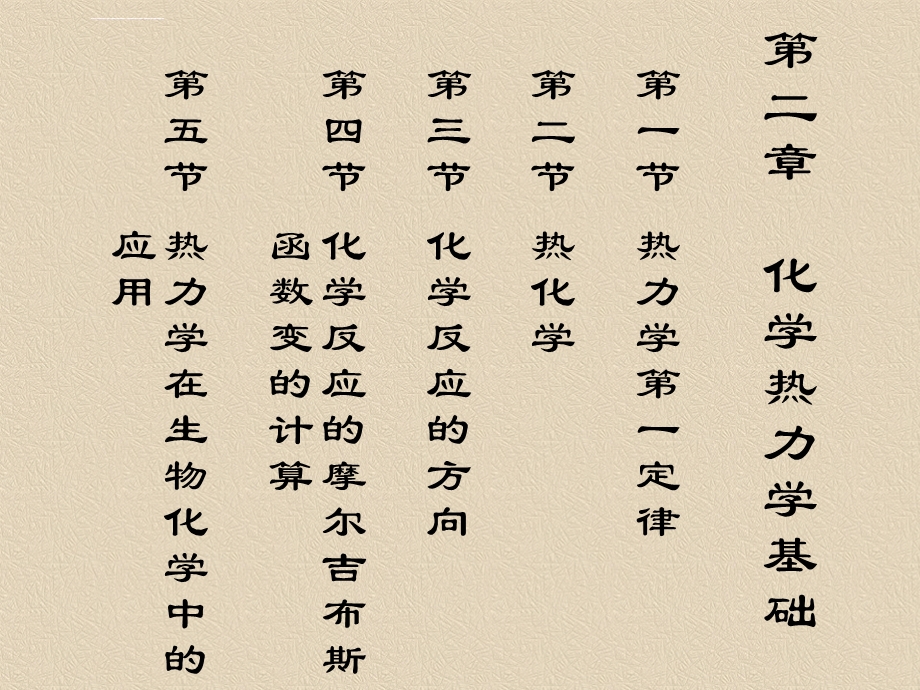 第二章 化学热力学基础
第一节 热力学第一定律
第二节 热化学
第三节 化学反应的方向
第四节 化学反应的摩尔吉布斯
函数变的计算
第五节 热力学在生物化学中的
应用